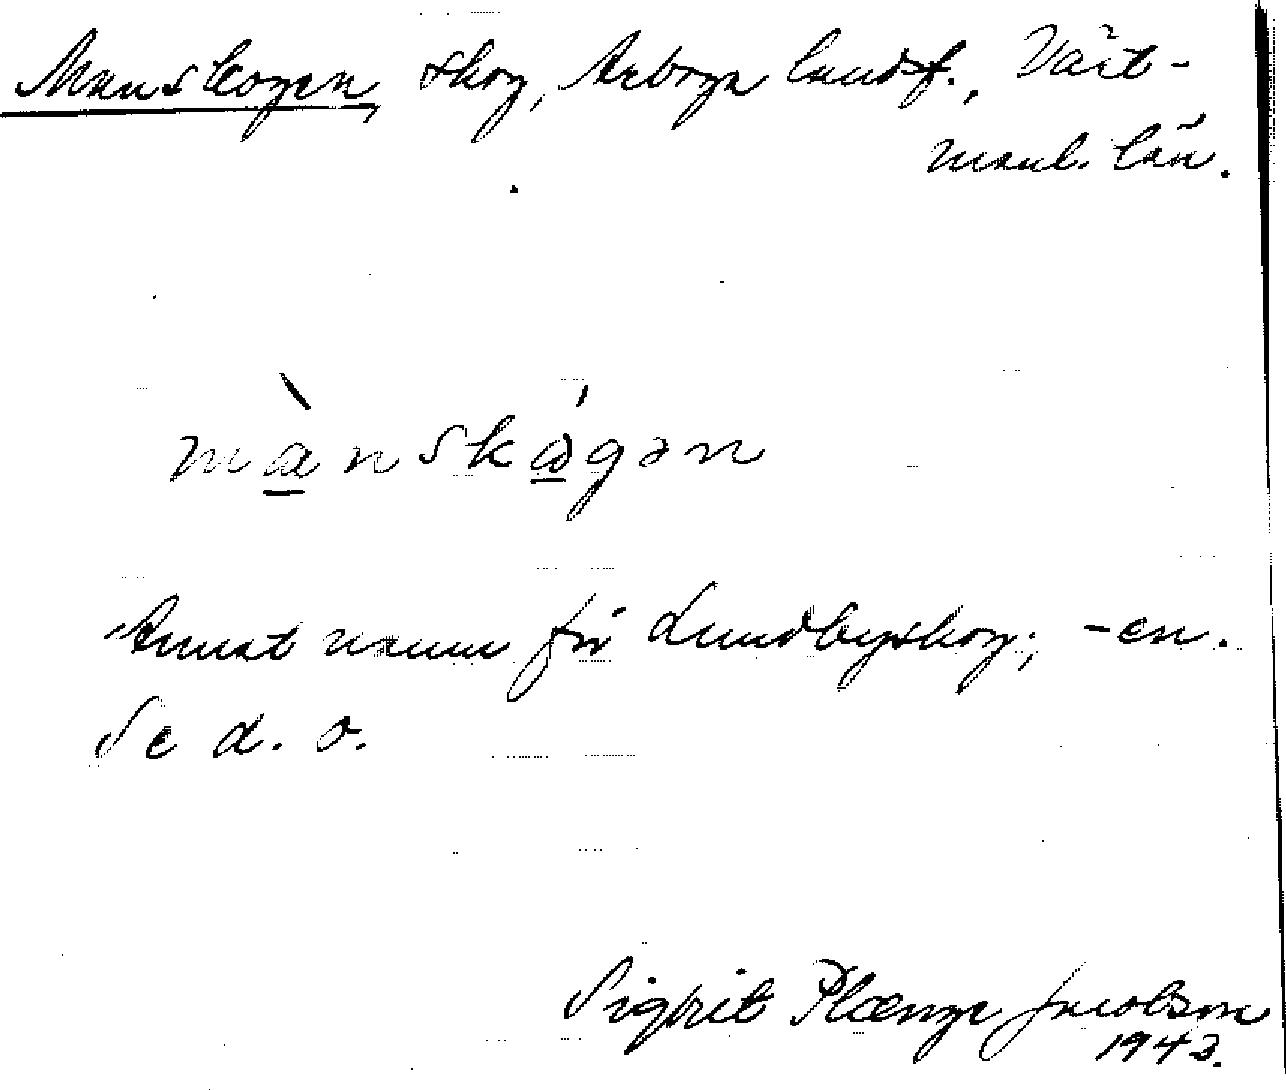 Manskogen, skog, Arboga landsf., Väst-
manl. län.
mànskɷ́gən
Annat namn för Lundbyskog; -en.
Se d. o.
Sigfrit Plænge Jacobson
1943.